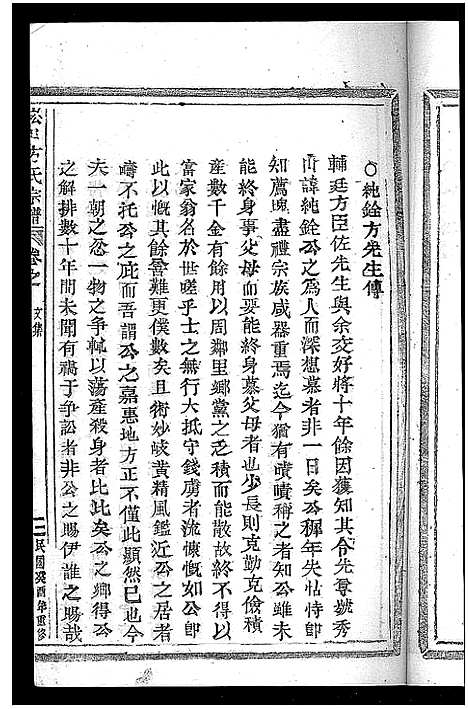 ○純銓方先生傳
輔廷方臣佐先生與余交好將十年餘因獲知其令先尊號秀
山諱純銓公之為人而深想慕者非一日矣公穉年失怙恃即
知薦塊盡禮宗族咸器重焉迄今猶有嘖嘖稱之者知公雖未
能終身事父母而要能終身慕父母者也少長則克勤克儉積
產數千金有餘用以周鄰里鄉黨之乏積而能散故終不得以
富家翁名於世嗟乎士之無行大抵守錢虜者流慷慨如公即
此以概其餘善難更僕數矣且術妙岐黃精風鑑近公之居者
疇不托公之庇而吾謂公之嘉惠地方正不僅此顯然已也今
夫一朝之忿一物之爭輒以蕩產殺身者比比矣公之鄉得公
之解排數十年間未聞有禍于爭訟者非公之賜伊誰之賜哉
方氏宗譜
卷之一
文集
民國癸酉年重修